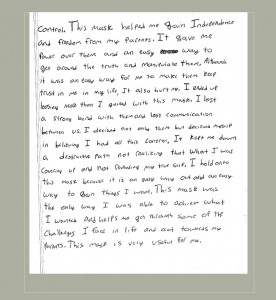 control. This mask helped me gain Independence
and freedom from my parents. It gave me
Power over them and an easy way to
get around the truth and manipulate them. Although
it was an easy way for me to make them keep
trust in me in my life, It also hurt me. I ended up
loosing more than I gained with this mask. I lost
a strong bond with them and lost communication
between us. I decived not only them but decived myself
in believing I had all this control. It kept me down
a destructive path not realizing that what I was
covering up and not revealing my true self. I hold onto
this mask because it is an easy way out and an easy
way to gain things I want. This mask was
the only way I was able to achieve what
I wanted and helps me get through some of the
challenges I face in life and out towards my
Parents. This mask is very useful for me.